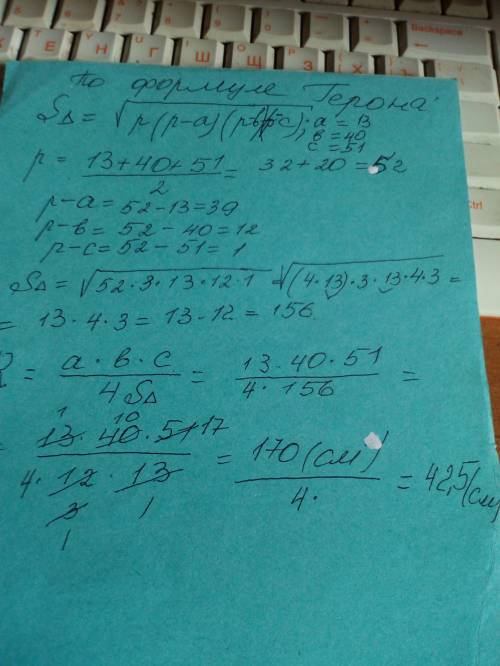 Backspace
Ctrl
По формуле Герона:
S△ = √p(p-a)(p-в)(p-c); a = 13
в = 40
c = 51
p = 13+40+51/2 = 32+20 = 52
p-a = 52-13=39
p-в = 52-40=12
p-c = 52-51=1
S△ = √52·3·13·12·1 √(4·13)·3·13·4·3 =
= 13·4·3 = 13·12 = 156
R = a·в·c/4S△ = 13·40·51/4·156 =
1 10
= 13·40·51 17/4·12·13 = 170(см)/4· = 42,5(см)
3 1
1